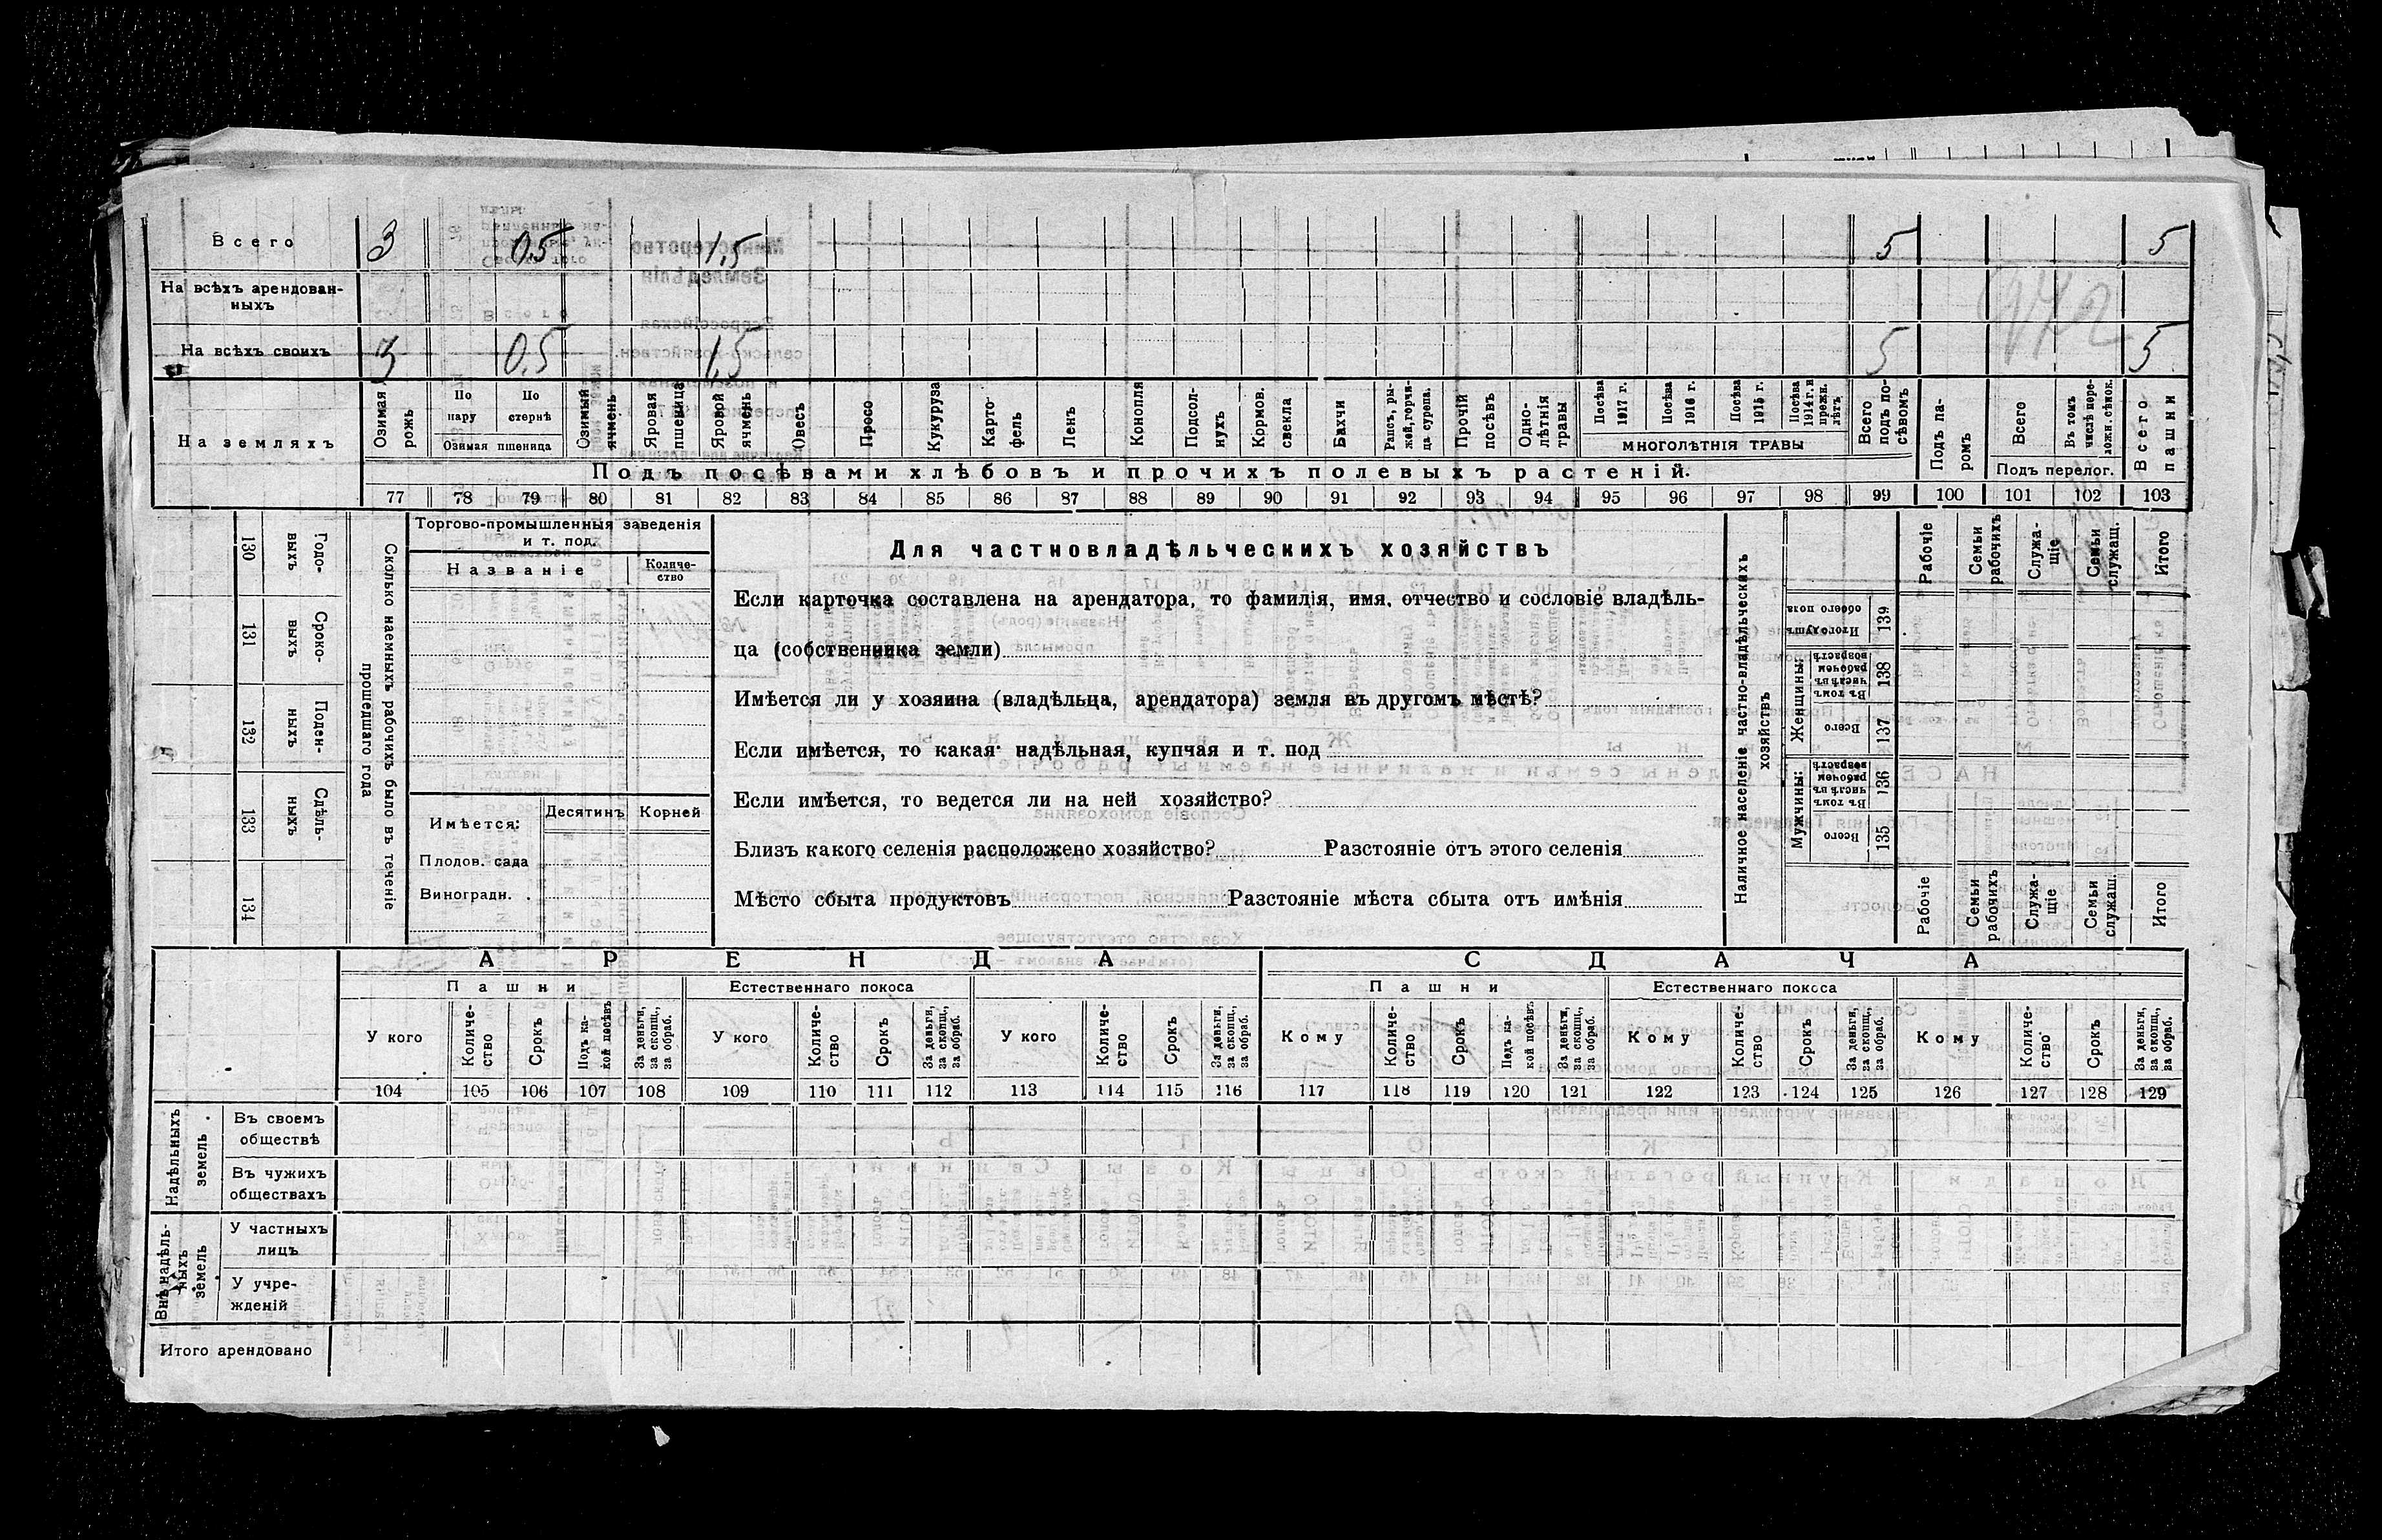 Всего 3 0,5 1,5 5 5
На всѣхъ арендован-
ныхъ
На всѣхъ своихъ 3 0,5 1,5 5 5
972
На земляхъ
Озимая рожь
По пару
По стернѣ
Озимая пшеница
Озимый ячмень
Яровая пшеница
Яровой ячмень
Овесъ
Просо
Кукуруза
Карто-
фель
Ленъ
Конопля
Подсол-
нухъ
Кормов.
свекла
Бахчи
Рапсъ, ры-
жей, горчи-
ца сурепа.
Прочій
посѣвъ
Одно-
лѣтнія
травы
Посѣва
1917 г.
Посѣва
1916 г.
Посѣва
1915 г.
Посѣва
1914 г. и
прежн.
лѣтъ
МНОГОЛѢТНІЯ ТРАВЫ
Всего
подъ по-
сѣвомъ
Подъ па-
ромъ
Всего
Въ томъ
числѣ пере-
ложн. сѣнок.
Подъ перелог.
Всего
пашни
Подъ посѣвами хлѣбовъ и прочихъ полевыхъ растеній.
77 78 79 80 81 82 83 84 85 86 87 88 89 90 91 92 93 94 95 96 97 98 99 100 101 102 103
130 Годо-
выхъ
131 Сроко-
выхъ
132 Поден-
ныхъ
133 Сдѣль-
ныхъ
134
Сколько наемныхъ рабочихъ было въ теченіе
прошедшаго года
Торгово-промышленныя заведенія
и т. под.
Названіе
Количе-
ство
Имѣется:
Десятинъ Корней
Плодов. сада
Виноградн.
Для частновладѣльческихъ хозяйствъ
Если карточка составлена на арендатора, то фамилія, имя, отчество и сословіе владѣль-
ца (собственника земли)
Имѣется ли у хозяина (владѣльца, арендатора) земля въ другомъ мѣстѣ?
Если имѣется, то какая: надѣльная, купчая и т. под
Если имѣется, то ведется ли на ней хозяйство?
Близъ какого селенія расположено хозяйство? Разстояніе отъ этого селенія
Мѣсто сбыта продуктовъ Разстояніе мѣста сбыта отъ имѣнія
Наличное населеніе частно-владѣльческихъ
хозяйствъ
Рабочіе
Семьи
рабочихъ
Служа-
щіе
Семьи
служащ.
Итого
Итого душъ
обоего пола
139
Женщины:
Въ томъ
числѣ въ
рабочемъ
возрастѣ
138
Всего
137
Мужчины:
Въ томъ
числѣ въ
рабочемъ
возрастѣ
136
Всего
135
Рабочіе
Семьи
рабочихъ
Служа-
щіе
Семьи
служащ.
Итого
АРЕНДА СДАЧА
Пашни Естественнаго покоса Пашни Естественнаго покоса
У кого
Количе-
ство
Срокъ
Подъ ка-
кой посѣвъ
За деньги,
за скопщ.,
за обраб.
У кого
Количе-
ство
Срокъ
За деньги,
за скопщ.,
за обраб.
У кого
Количе-
ство
Срокъ
За деньги,
за скопщ.,
за обраб.
Кому
Количе-
ство
Срокъ
Подъ ка-
кой посѣвъ
За деньги,
за скопщ.,
за обраб.
Кому
Количе-
ство
Срокъ
За деньги,
за скопщ.,
за обраб.
Кому
Количе-
ство
Срокъ
За деньги,
за скопщ.,
за обраб.
104 105 106 107 108 109 110 111 112 113 114 115 116 117 118 119 120 121 122 123 124 125 126 127 128 129
Надѣльныхъ
земель
Въ своемъ
обществѣ
Въ чужихъ
обществахъ
Внѣ надѣль-
ныхъ
земель
У частныхъ
лицъ
У учре-
жденій
Итого арендовано